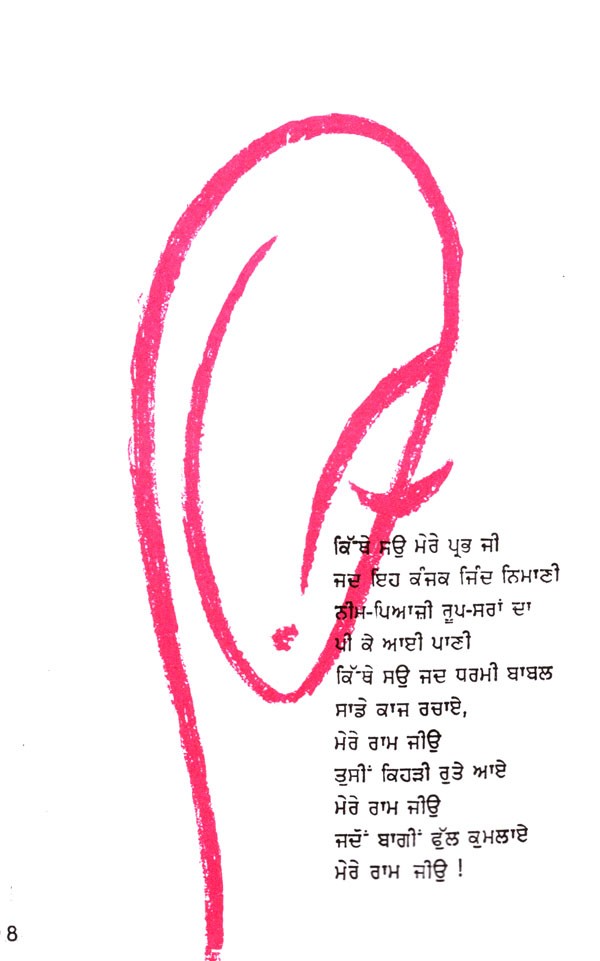 ਕਿੱਥੇ ਸਉ ਮੇਰੇ ਪ੍ਰਭ ਜੀ
ਜਦ ਇਹ ਕੰਜਕ ਜਿੰਦ ਨਿਮਾਣੀ
ਨੀਮ-ਪਿਆਜ਼ੀ ਰੂਪ-ਸਰਾਂ ਦਾ
ਪੀ ਕੇ ਆਈ ਪਾਣੀ
ਕਿੱਥੇ ਸਉ ਜਦ ਧਰਮੀ ਬਾਬਲ
ਸਾਡੇ ਕਾਜ ਰਚਾਏ,
ਮੇਰੇ ਰਾਮ ਜੀਉ
ਤੁਸੀਂ ਕਿਹੜੀ ਰੁਤੇ ਆਏ
ਮੇਰੇ ਰਾਮ ਜੀਉ
ਜਦੋਂ ਬਾਗੀਂ ਫੁੱਲ ਕੁਮਲਾਏ
ਮੇਰੇ ਰਾਮ ਜੀਉ !
8